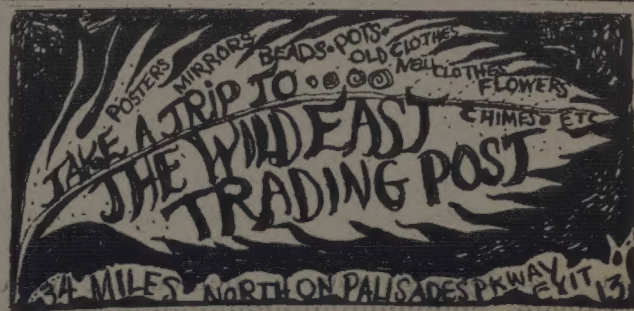 POSTERS MIRRORS BEADS • POTS •
OLD CLOTHES
NEW CLOTHES
FLOWERS
CHIMES • ETC
TAKE A TRIP TO...
THE WILD EAST
TRADING POST
34 MILES NORTH ON PALISADES PKWAY EXIT 13